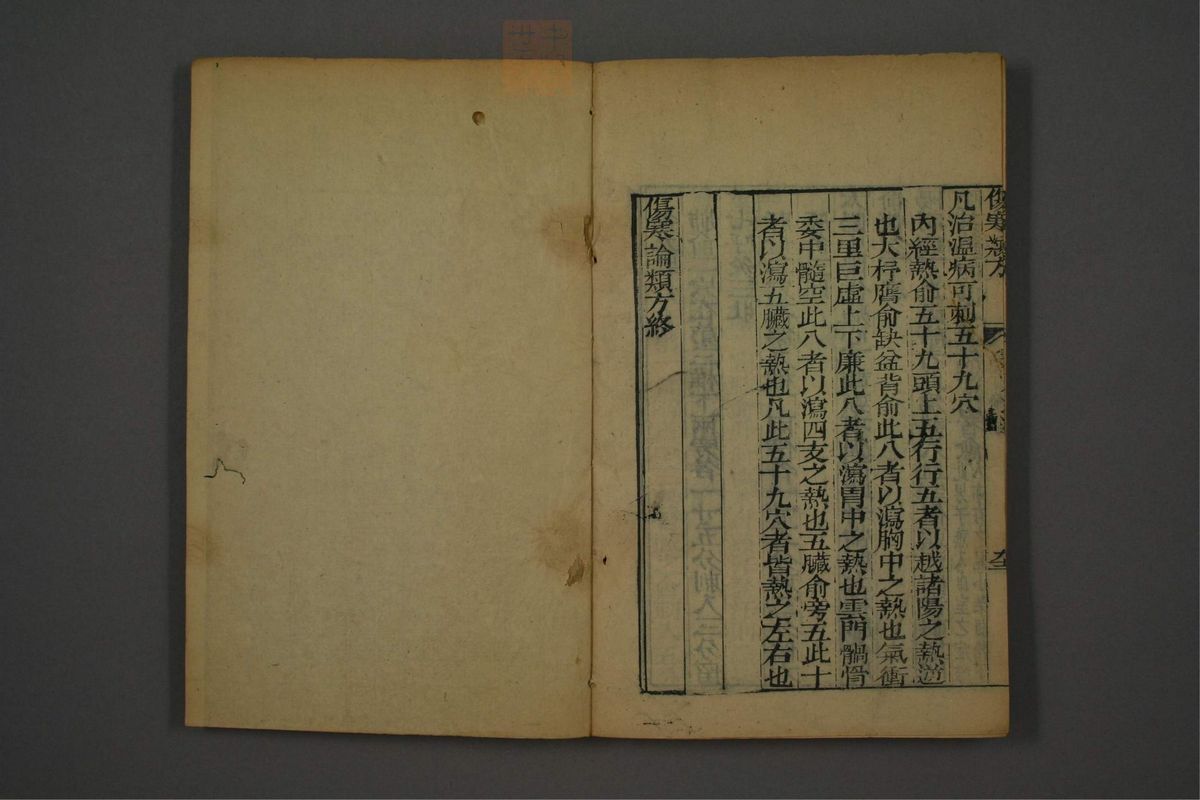 傷寒類方
凡治温病可刺五十九穴
內經熱俞五十九頭上五行行五者以越諸陽之熱逆
也大杼膺俞缺盆背俞此八者以瀉胸中之熱也氣衝
三里巨虛上下廉此八者以瀉胃中之熱也雲門髃骨
委中髓空此八者以瀉四支之熱也五臟俞旁五此十
者以瀉五臟之熱也凡此五十九穴者皆熱之左右也
傷寒論類方終